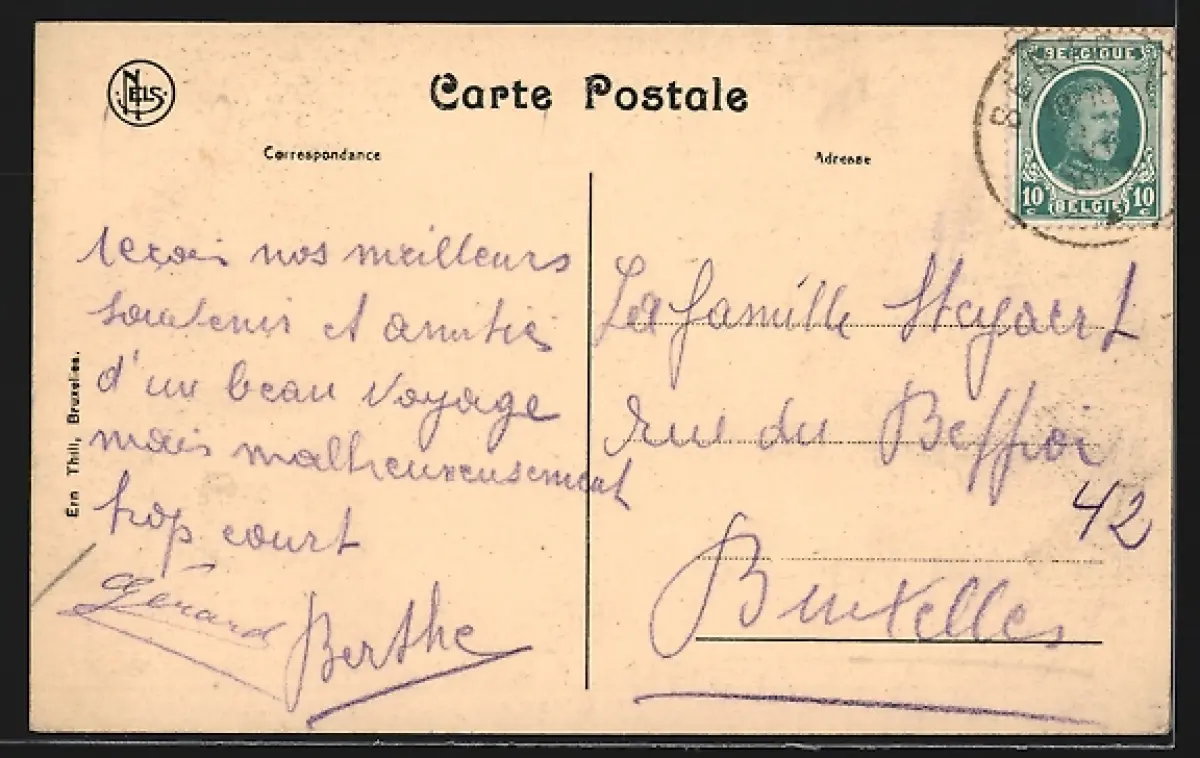 NELS
Carte Postale
Correspondance
Adresse
BELGIQUE
10 c 10 c
BELGIE
reçois nos meilleurs
souvenir et amitiés
d'un beau voyage
mais malheureusement
trop court
Gérard
Berthe
La famille
rue du Beffroi
42
Bruxelles
Ern Thill, Bruxelles.